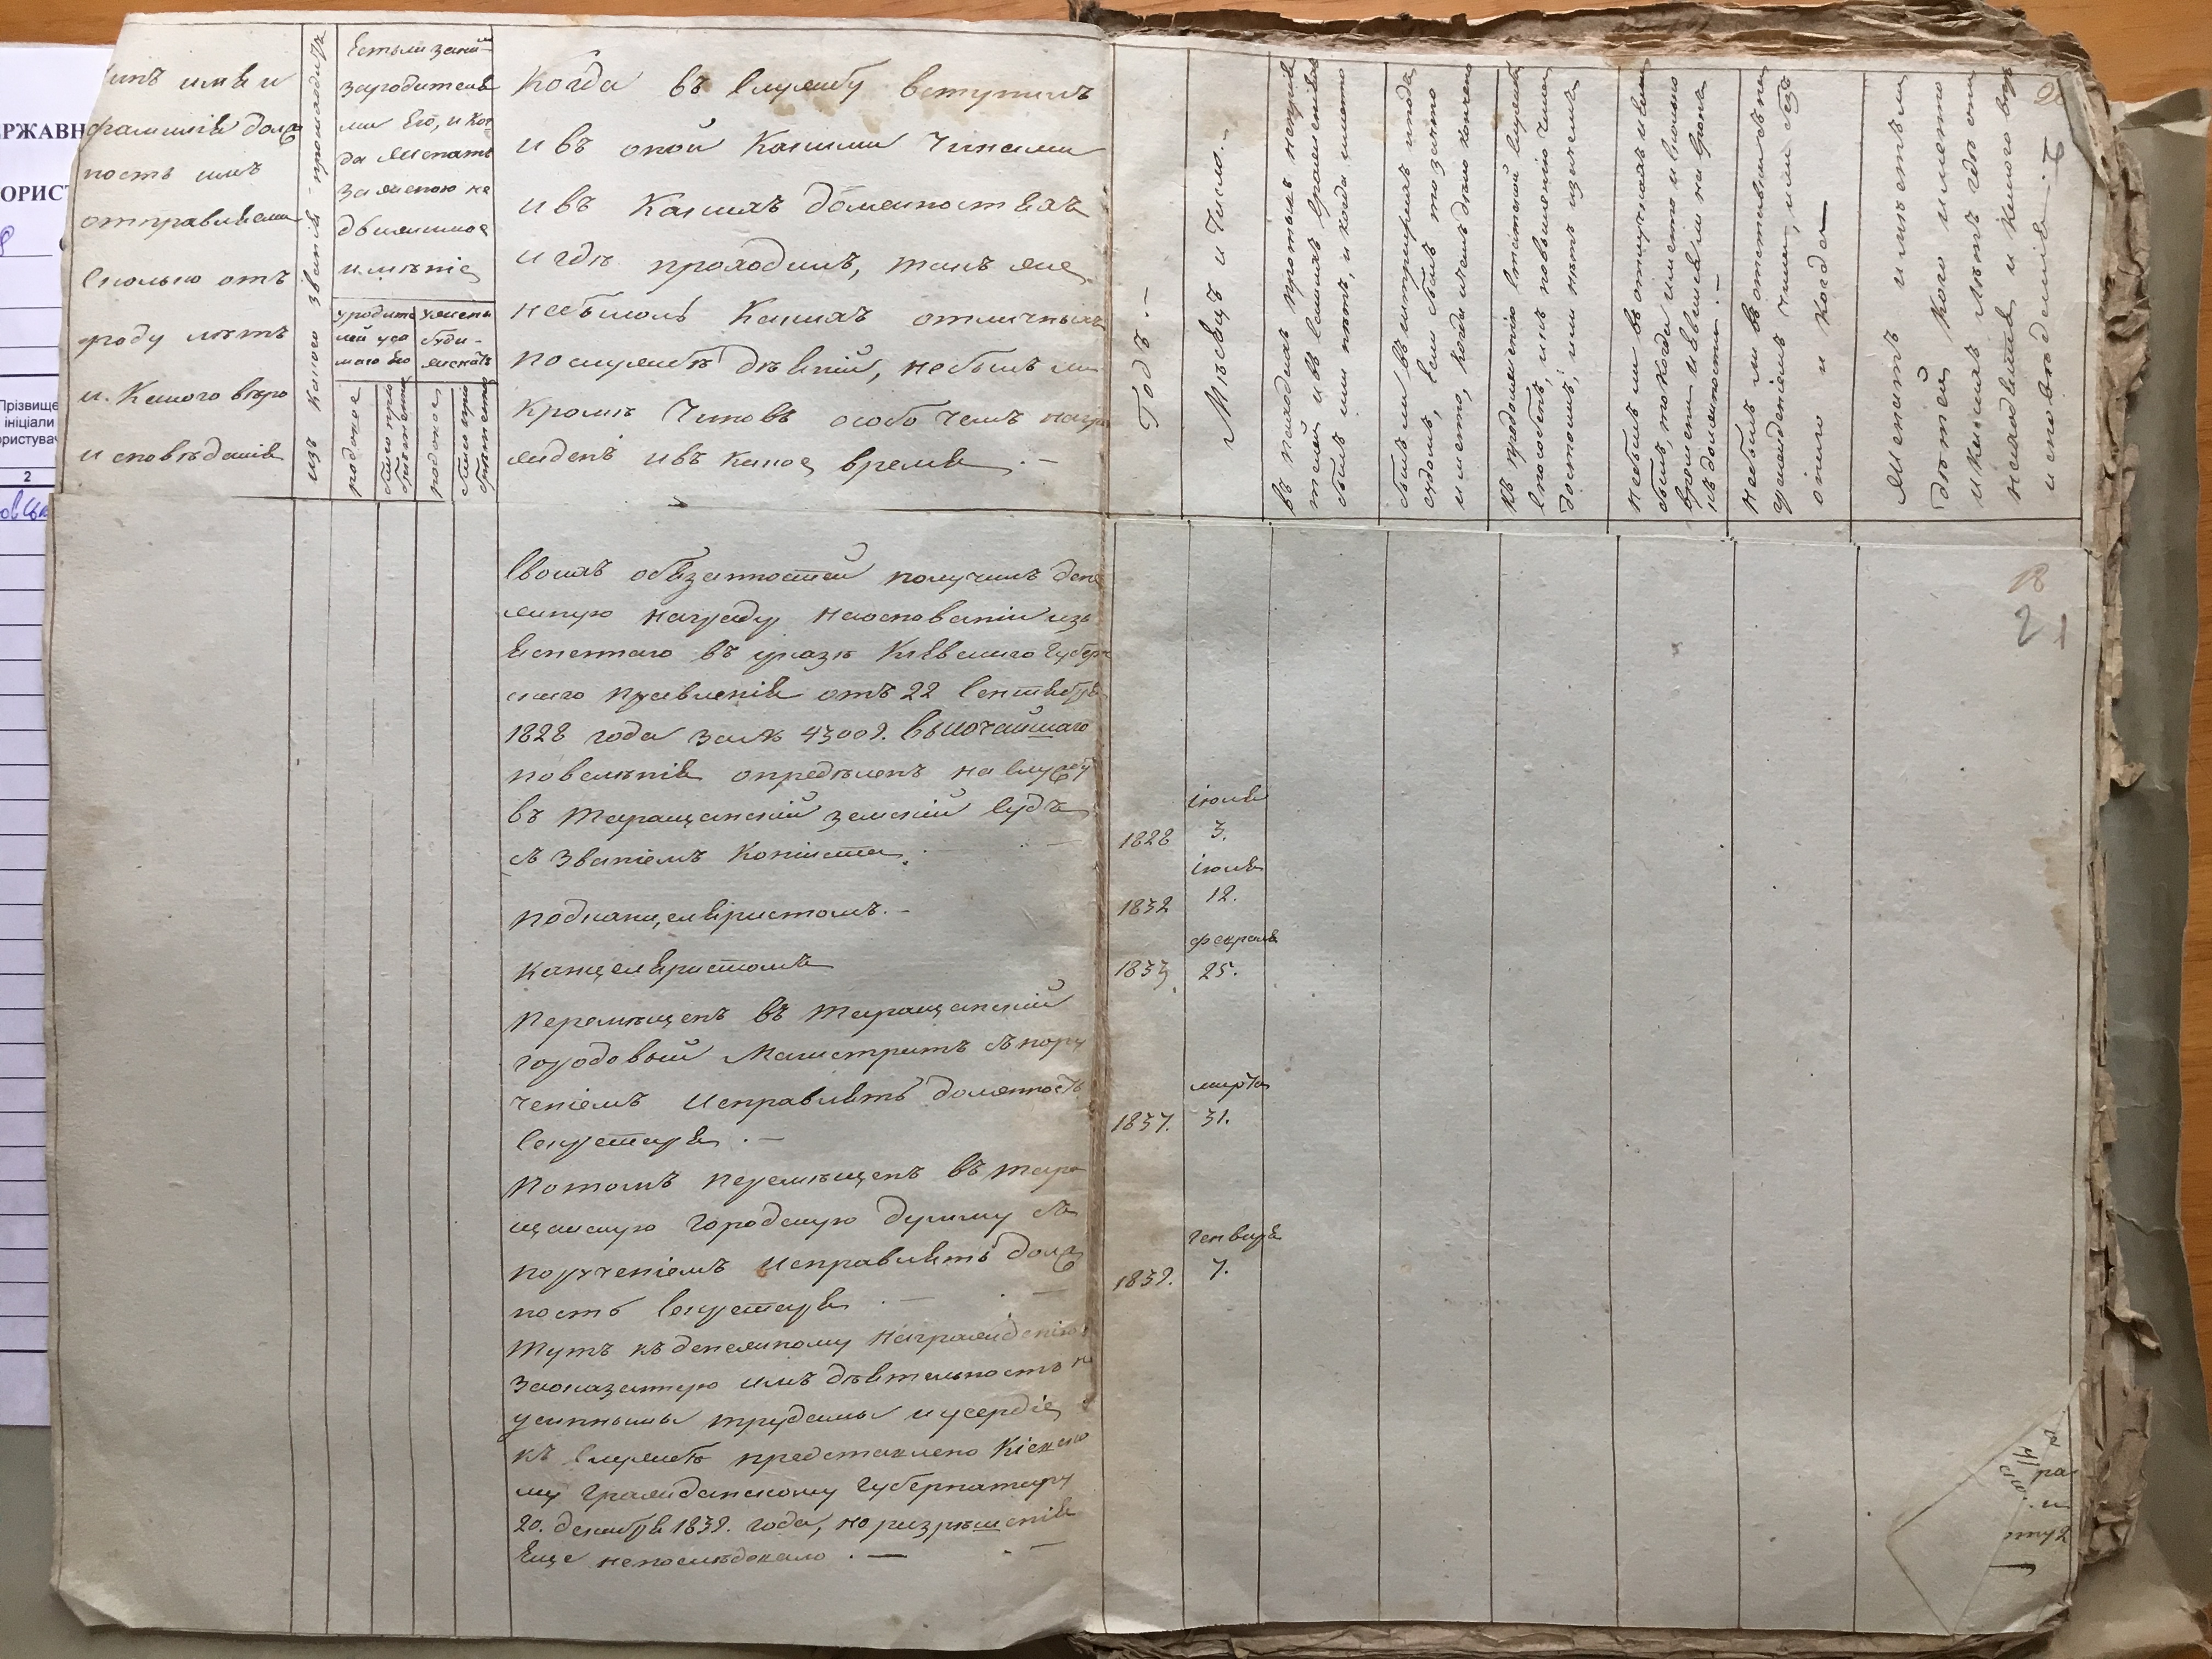 Чинъ имя и
фамилія долж
ность имъ
отправляема
сколько отъ
роду лѣтъ
и. Какого вѣро
исповѣданія
изъ какого званія происходитъ
Естьли за нимъ
за родителя
ми Его, и ког
да Женатъ
за женою не
движимое
имѣніе
у родите
лей уса
маго Его
у жены
буди-
женатъ
родовое
благопрі
обретенное
родовое
благопрі
обретенное
Когда въ Службу вступилъ
и въ оной Какими Чинами
и въ Какихъ Должностяхъ
и гдѣ проходилъ, такъ же
не было ли Какихъ отличныхъ
по службѣ дѣяній, не былъ ли
Кромѣ Чиновъ особо Чемъ награ
жденъ и въ какое время. —
Годъ. —
Мѣсяцъ и Число. —
въ походахъ противъ непрія
теля и въ самыхъ сраженіяхъ
былъ или нѣтъ, и когда имянно
былъ ли въ штрафахъ и подъ
судомъ, Если былъ то за что
имянно, Когда и чемъ дело кончено
Къ продолженію Статской службы
способенъ, и къ повышенію Чина
достоинъ, или нѣтъ и зачемъ
не былъ ли въ отпускахъ и если
былъ, то когда имянно и сколько
времени и явился ли на срокъ
къ должности. —
не былъ ли въ отставкѣ съ на
гражденіемъ чина, или безъ
онаго и когда —
Женатъ имѣетъ ли
дѣтей Кого имянно
и какихъ лѣтъ гдѣ они
находятся и Какого вѣро
исповѣданія. —
18
21
Своихъ обязанностей получилъ дене
жную награду, на основаніи изъ
ясненнаго въ указѣ Кіевскаго Губерн
скаго Правленія отъ 22 Сентября
1828 года за № 43009. Высочайшаго
повелѣнія опредѣленъ на службу
въ Таращанскій земскій Судъ
съ Званіемъ Копіиста. —
1828
іюля
3.
подканцеляристомъ. —
1832
іюля
12.
Канцеляристомъ
1833
февраля
25.
Перемѣщенъ въ Таращанскій
городовый Магистратъ съ пору
ченіемъ Исправлять должность
Секретаря. —
1837.
марта
31.
Потомъ перемѣщенъ въ Тара
щанскую городскую думу съ
порученіемъ Исправлять долж
ность Секретаря. —
1839.
генваря
7.
Тутъ къ денежному награжденію
за оказанную имъ дѣятельность не
усыпными трудами и усердіе
къ службѣ представлено Кіевско
му Гражданскому Губернатору
20. декабря 1839. года, но разрѣшенія
Еще не последовало. —